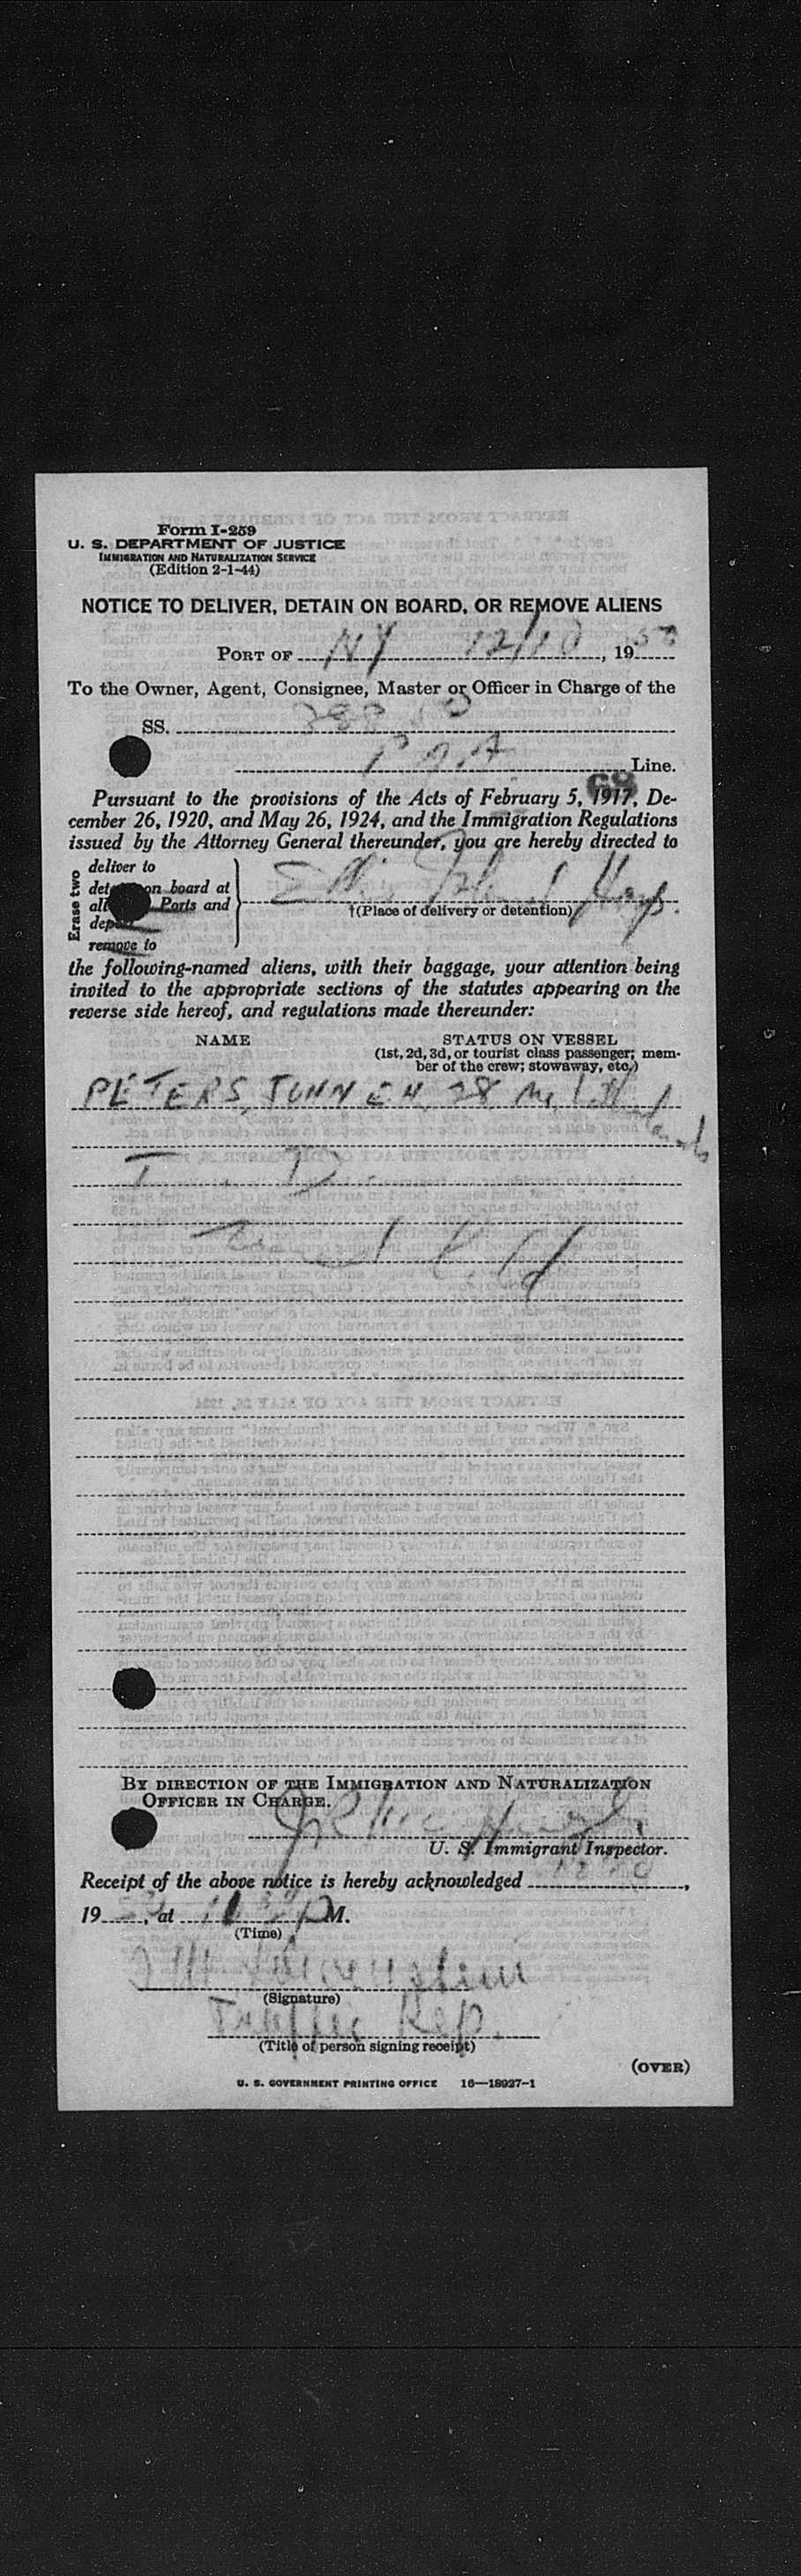 Form I-259
U. S. DEPARTMENT OF JUSTICE
IMMIGRATION AND NATURALIZATION SERVICE
(Edition 2-1-44)
NOTICE TO DELIVER, DETAIN ON BOARD, OR REMOVE ALIENS
PORT OF NY 12/10, 1950
To the Owner, Agent, Consignee, Master or Officer in Charge of the
SS.
Line.
68
Pursuant to the provisions of the Acts of February 5, 1917, De-
cember 26, 1920, and May 26, 1924, and the Immigration Regulations
issued by the Attorney General thereunder, you are hereby directed to
Erase two
deliver to
detain on board at
all Ports and
depart
remove to
Ellis Island Hosp.
†(Place of delivery or detention)
the following-named aliens, with their baggage, your attention being
invited to the appropriate sections of the statutes appearing on the
reverse side hereof, and regulations made thereunder:
NAME STATUS ON VESSEL
(1st, 2d, 3d, or tourist class passenger; mem-
ber of the crew; stowaway, etc.)
PETERS, 28, M,
T. D.
BY DIRECTION OF THE IMMIGRATION AND NATURALIZATION
OFFICER IN CHARGE.
U. S. Immigrant Inspector.
Receipt of the above notice is hereby acknowledged,
19, at M.
(Time)
(Signature)
Rep.
(Title of person signing receipt)
(OVER)
U. S. GOVERNMENT PRINTING OFFICE 16—18927-1